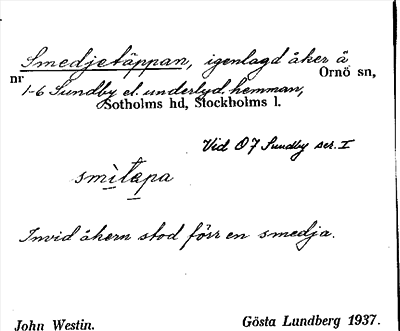 Smedjetäppan, igenlagd åker å
nr Ornö sn,
1-6 Sundby el. underlyd. hemman,
Sotholms hd, Stockholms l.
Vid O7 Sundby ser. I
smìtepa
Invid åkern stod förr en smedja.
John Westin. Gösta Lundberg 1937.